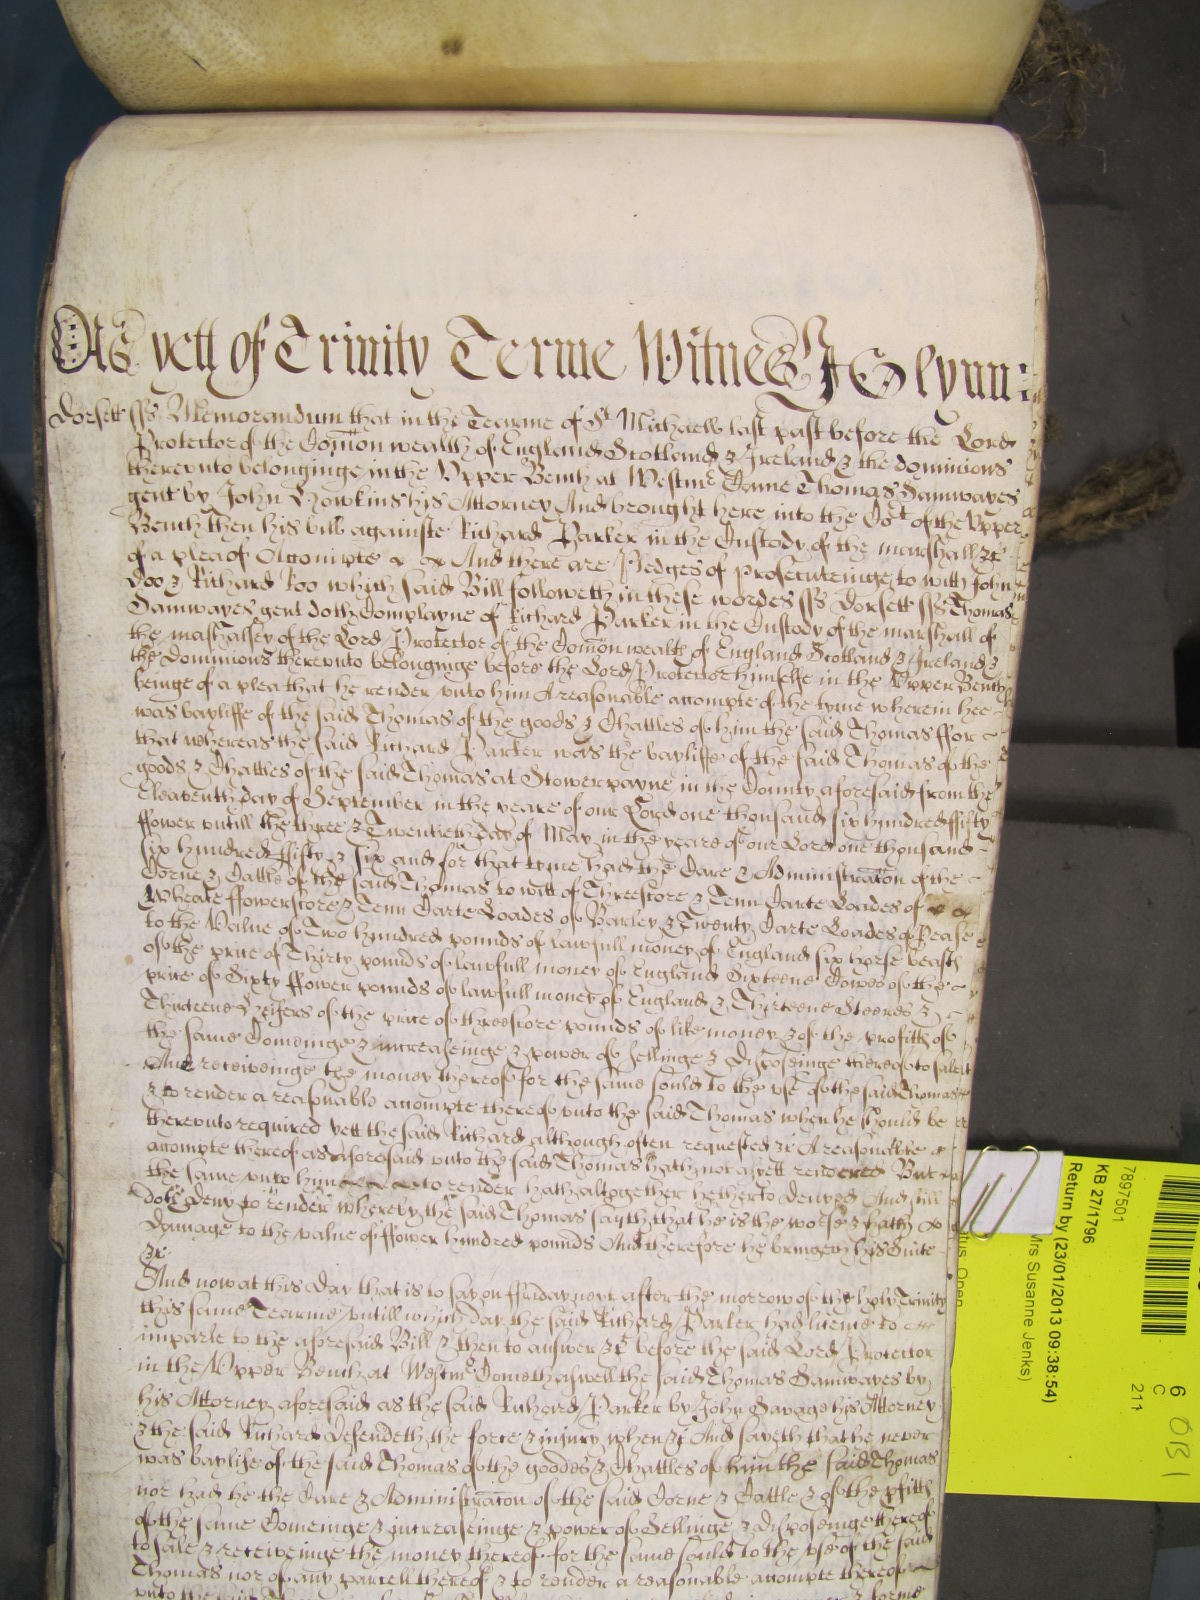 As yett of Trinity Terme Witnes J Glynn:
Dorsett ss Memorandum that in the Tearme of St Michaell last past before the Lord
Protector of the Comon wealth of England Scotland & Ireland & the dominions
thereunto belonginge in the Upper Bench at Westmr Came Thomas Samwayes
gent by John Hawkins his Attorney And brought here into the Cort of the Upper
Bench then his bill againste Richard Parker in the Custody of the marshall &c
of a plea of Accompte And there are Pledges of prosecuteinge to witt John
Doo & Richard Roo which said Bill followeth in these wordes ss Dorsett ss Thomas
Samwayes gent doth Complayne of Richard Parker in the Custody of the marshall of
the mashallsey of the Lord Protector of the Comon wealth of England Scotland & Ireland &
the Dominions thereunto belonginge before the Lord Protector himselfe in the Upper Bench
beinge of a plea that he render unto him A reasonable accompte of the tyme wherein hee
was bayliffe of the said Thomas of the goods & Chattles of him the said Thomas ffor
that whereas the said Richard Parker was the bayliffe of the said Thomas of the
goods & Chattles of the said Thomas at Stowerpayne in the County aforesaid from the
Eleaventh day of September in the yeare of our Lord one thousand six hundred ffifty
ffower untill the three & Twentieth day of May in the yeare of our Lord one thousand
six hundred ffifty & six and for that tyme had the Care & Administracon of the
Corne & Cattle of the said Thomas to witt of Threescore & Tenn Carte Loades of
Wheate ffowerscore & Tenn Carte Loades of Barley & Twenty Carte Loades of Pease
to the Value of Two hundred pounds of lawfull money of England six horse beasts
of the price of Thirty pounds of lawfull money of England Sixteene Cowes of the
price of Sixty ffower pounds of lawfull money of England & Thirteene Steeres &
Thirteene Heifers of the price of threescore pounds of like money & of the profitts of
the same Comeinge & increaseinge & power of Sellinge & Disposeinge thereof to sale
And receiveinge the money thereof for the same sould to the use of the said Thomas
& to render a reasonable accompte thereof unto the said Thomas when he should be
thereunto required yett the said Richard although often requested &c A reasonable
accompte thereof as aforesaid unto the said Thomas hath not as yett rendered But
the same unto him to render hath altogether hetherto denyed And still
doth Deny to render whereby the said Thomas sayth that he is the worse & hath
Damage to the value of ffower hundred pounds And therefore he bringeth his Suite
&c
And now at this day that is to say on ffriday next after the morrow of the holy Trinity
this same Tearme untill which day the said Richard Parker had licence to
imparle to the aforesaid Bill & then to answer &c before the said Lord Protector
in the Upper Bench at Westmr Cometh aswell the said Thomas Samwayes by
his Attorney aforesaid as the said Richard Parker by John Savage his Attorney
& the said Richard Defendeth the force & injury when &c And sayeth that he never
was baylife of the said Thomas of the goodes & Chattles of him the said Thomas
nor had he the Care & Administracon of the said Corne & Cattle & of the pfitts
of the same Comeinge & increaseinge & power of Sellinge & Disposeinge thereof
to sale & receiveinge the money thereof for the same sould to the use of the said
Thomas nor of any parcell thereof & to render a reasonable accompte thereof
unto the said
7897501
KB 27/1796
Return by (23/01/2013 09:38:54)
Mrs Susanne Jenks)
Open
6
C
211